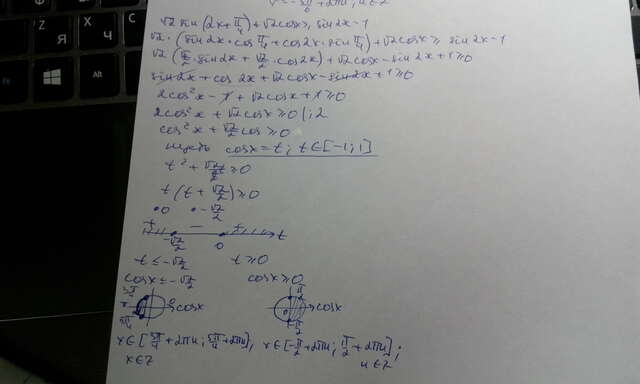 √2 sin(2x + π/4) + √2 cosx ≥ sin2x - 1
√2 · (sin2x · cos π/4 + cos2x · sin π/4) + √2 cosx ≥ sin2x - 1
√2 (√2/2 · sin2x + √2/2 · cos2x) + √2 cosx - sin2x + 1 ≥ 0
sin2x + cos2x + √2 cosx - sin2x + 1 ≥ 0
2cos²x - 1 + √2 cosx + 1 ≥ 0
2cos²x + √2 cosx ≥ 0 |:2
cos²x + √2/2 cosx ≥ 0
пусть cosx = t; t ∈ [-1; 1]
t² + √2/2 t ≥ 0
t(t + √2/2) ≥ 0
•0 •-√2/2
+ - +
-√2/2 0 t
t ≤ -√2/2 t ≥ 0
cosx ≤ -√2/2 cosx ≥ 0
3π/4 π/2
π cosx 0 cosx
5π/4 -π/2
x ∈ [3π/4 + 2πn; 5π/4 + 2πn], x ∈ [-π/2 + 2πn; π/2 + 2πn];
n ∈ Z
Я
Ч